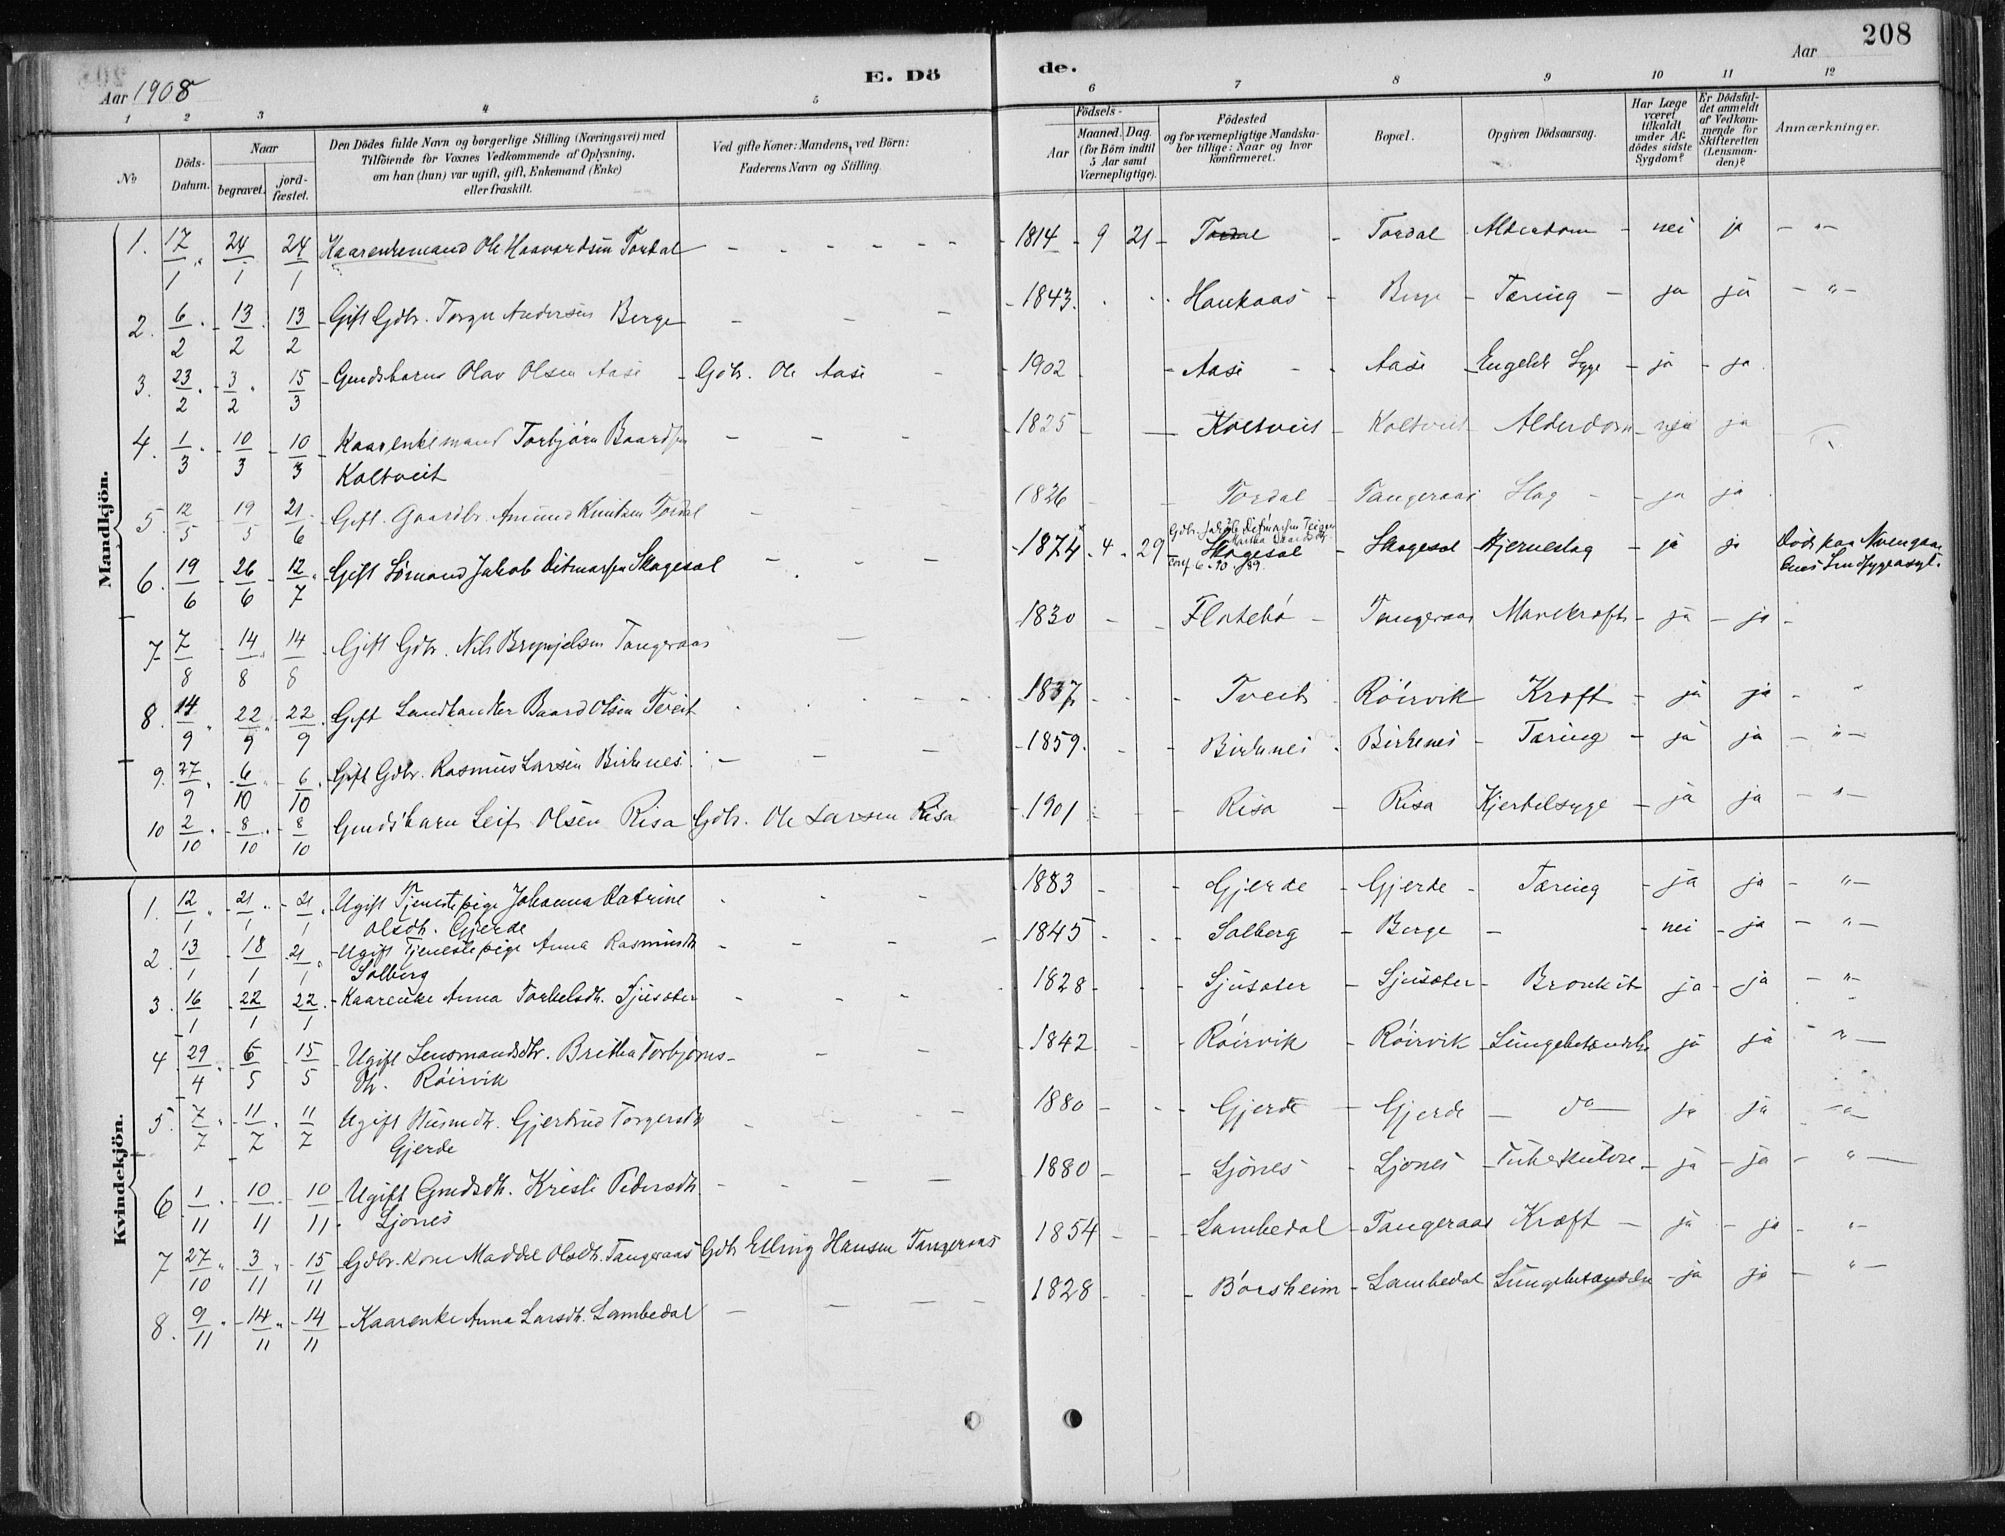 208
Aar 1908
E. Dö
de.
Aar
1 2 3 4 5 6 7 8 9 10 11 12
No
Döds-Datum.
Naar
begravet.
jord-fæstet.
Den Dödes fulde Navn og borgerlige Stilling (Næringsvei) med
Tilföiende for Voxnes Vedkommende af Oplysning,
om han (hun) var ugift, gift, Enkemand (Enke)
eller fraskilt.
Ved gifte Koner: Mandens, ved Börn:
Faderens Navn og Stilling.
Födsels-
Aar
Maaned. Dag.
(for Börn indtil
5 Aar samt
Værnepligtige).
Födested
og for værnepligtige Mandska-
ber tillige: Naar og hvor
konfirmeret.
Bopæl.
Opgiven Dödsaarsag.
Har Læge
været
tilkaldt
under Af-
dödes sidste
Sygdom?
Er Dödsfal-
det anmeldt
af Vedkom-
mende for
Skifteretten
(Lensman-
den)?
Anmærkninger.
Mandkjön.
1. 17/1 24/1 24/1 Kaarenkemand Ole Haavardsen Tordal - 1814 - 9 21 - Tordal - Tordal Alderdom - nei ja - " -
2. 6/2 13/2 13/2 Gift Gdbr. Torger Andersen Berge - 1843. Haukaas - Berge - Tæring - ja ja - " -
3. 23/2 3/2 15/3 Gmdsbarn Olav Olsen Aase - Gdbr. Ole Aase - 1902 - Aase - Aase - Engelsk Syge - ja - ja
4. 1/3 10/3 10/3 Kaarenkemand Torbjörn Baardsen
Koltveit - 1825 - Koltveit - Koltveit Alderdom - nei ja
5. 12/5 19/5 21/6 Gift. Gaardbr. Amund Knutsen Tordal - 1826 - Tordal - Tangeraas Slag - ja ja
6. 19/6 26/6 12/7 Gift Sömand Jakob Ditmarsen Skogesal - 1874 - 4 - 29 Skogesal
conf 6-10-89. - Skogesal - Hjerneslag - ja ja Död paa Neevengaar-
dens Sindsygeasyl.
7 7/8 14/8 14/8 Gift Gdbr. Nils Brynjelsen Tangeraas - 1830 - Flatebö - Tangeraas Mavekræft - ja - ja -
8. 14/9 22/9 22/9 Gift Landhandler Baard Olsen Tveit - 1837 - Tveit Röirvik Kræft - ja ja - "
9. 27/9 6/10 6/10 Gift Gdbr. Rasmus Larsen Birkenes - 1859. Birkenes - Birkenes - Tæring - ja ja - " -
10 2/10 8/10 8/10 Gmdsbarn Leif Olsen Risa Gdbr. Ole Larsen Risa - 1901 - Risa - Risa Kjertelsyge - ja ja - " -
Kvindekjön.
1. 12/1 21/1 21/1 Ugift Tjenestepige Johanna Katrine
Olsdtr. Gjerde - 1883 - Gjerde - Gjerde - Tæring - ja ja - " -
2 13/1 18/1 21/1 Ugift Tjenestepige Anna Rasmusdtr.
Solberg - 1845 - Solberg - Berge - - nei - ja - " -
3. 16/1 22/1 22/1 Kaarenke Anna Torkelsdtr. Sjusæter - 1828 - Sjusæter - Sjusæter - Bronkit ja - ja - " -
4 29/4 6/5 15/5 Ugift Lensmandsdtr. Britha Torbjörns-
dtr. Röirvik - 1842 - Röirvik - Röirvik - Lungebetændelse ja ja " -
5. 7/7 11/7 11/7 Ugift Husmdtr. Gjertrud Torgersdtr
Gjerde - 1880 - Gjerde - Gjerde - do - ja ja - " -
6 1/11 10/11 10/11 Ugift Gmdsdtr. Kristi Pedersdtr.
Ljones - 1880 - Ljönes - Ljones - Tuberkulose - ja - ja - " -
7 27/10 3/11 15/11 Gdbr. kone Maddel Olsdtr. Tangeraas Gdbr Elling Hansen Tangeraas 1854 - Lambedal - Tangeraas Kræft - ja - ja - " -
8. 9/11 14/11 14/11 Kaarenke Anna Larsdtr. Lambedal - 1828 - Börsheim - Lambedal Lungebetændelse - ja ja - " -